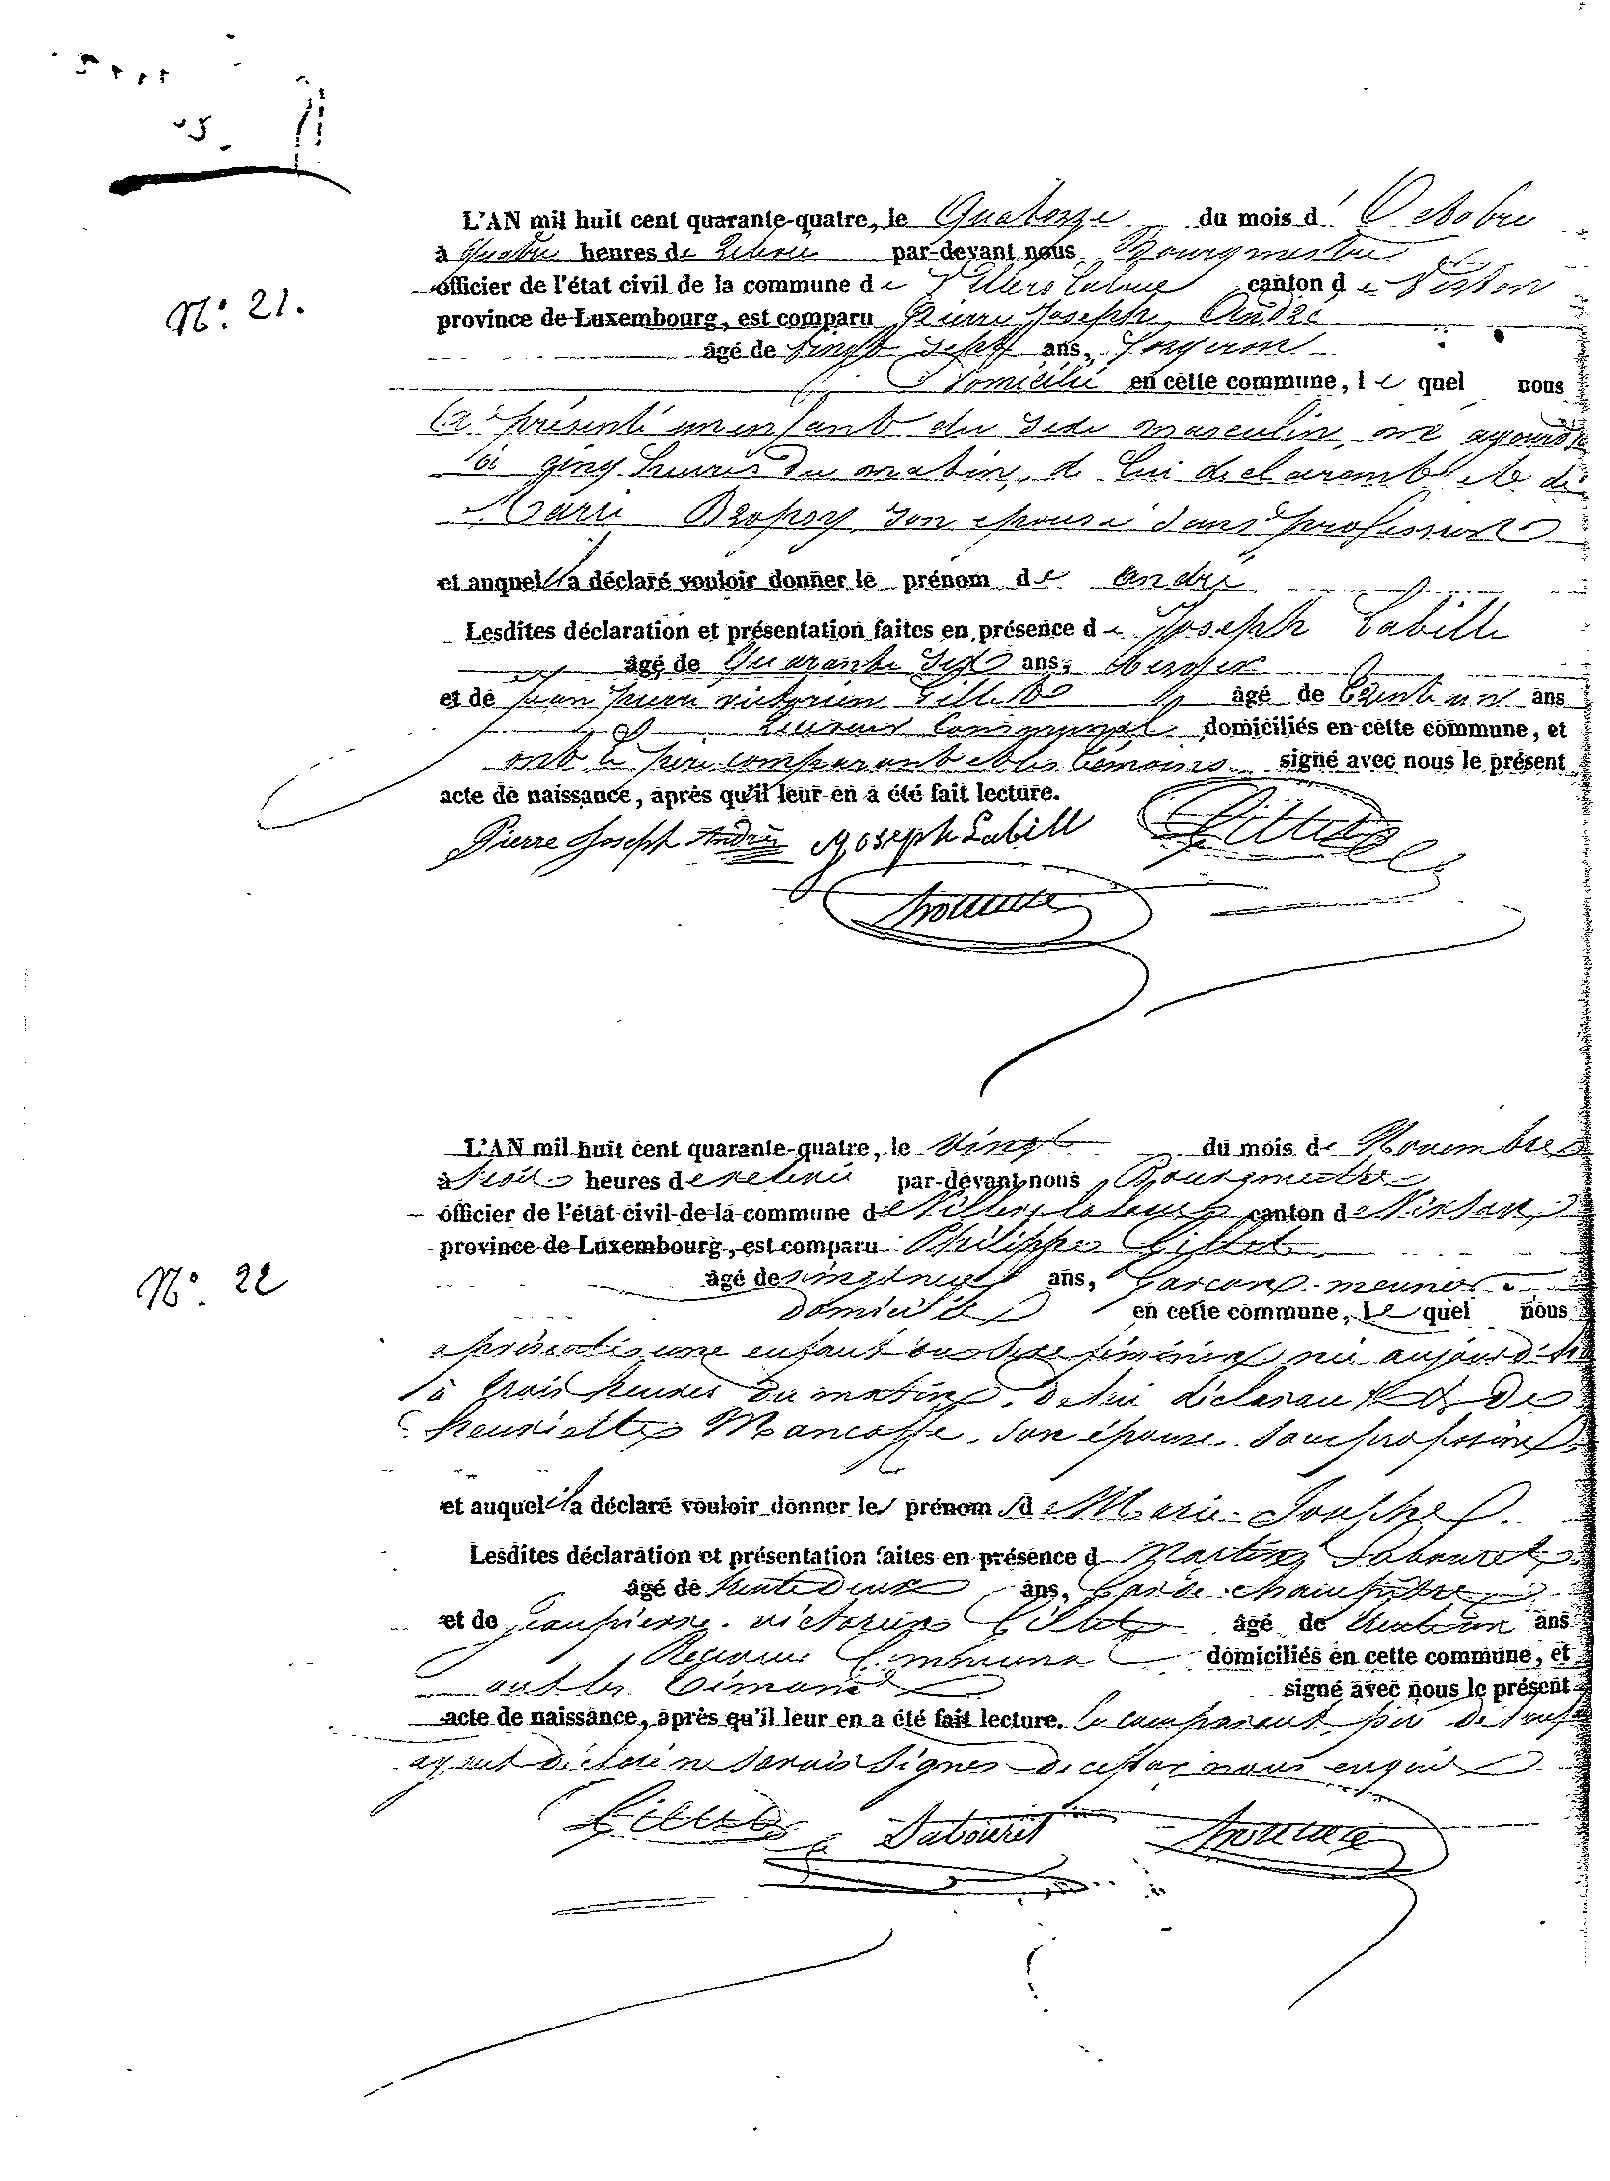 N°. 21.
L'AN mil huit cent quarante-quatre, le Quatorze du mois d' Octobre
à quatre heures de relevée par-devant nous Bourgmestre
officier de l'état civil de la commune de Villers Laloue canton de Virton
province de Luxembourg, est comparu Pierre Joseph André
âgé de vingt sept ans, forgeron
domicilié en cette commune, le quel nous
a présenté un enfant du sexe masculin, né
à cinq heures du matin, de lui declarant et de
Marie son epouse sans profession
et auquel il a déclaré vouloir donner le prénom de andré
Lesdites déclaration et présentation faites en présence de Joseph Labille
âgé de quarante six ans, berger
et de jean pierre victorien Gillet âgé de trente un ans
receveur communal domiciliés en cette commune, et
ont le père comparant et les témoins signé avec nous le présent
acte de naissance, après qu'il leur en a été fait lecture.
Pierre Joseph André Joseph Labill Gillet
N°. 22
L'AN mil huit cent quarante-quatre, le vingt du mois de Novembre
à trois heures de relevée par-devant nous Bourgmestre
officier de l'état civil de la commune de Villers laloue canton de Virton
province de Luxembourg, est comparu Philippe Gillet
âgé de vingt neuf ans, Garçon meunier
domicilié en cette commune, le quel nous
a présenté une enfant du sexe féminin née aujourd'hui
à trois heures du matin, de lui déclarant et de
henriette son épouse sans profession
et auquel il a déclaré vouloir donner les prénoms de Marie Josephe
Lesdites déclaration et présentation faites en présence de Martin Sabouret
âgé de trente deux ans, Garde champêtre
et de Jean pierre victorien Gillet âgé de trente un ans
Receveur Communal domiciliés en cette commune, et
ont les témoins signé avec nous le présent
acte de naissance, après qu'il leur en a été fait lecture. le comparant père de l'enfant
ayant déclaré ne savoir signer de ce par nous enquis
Gillet Sabouret